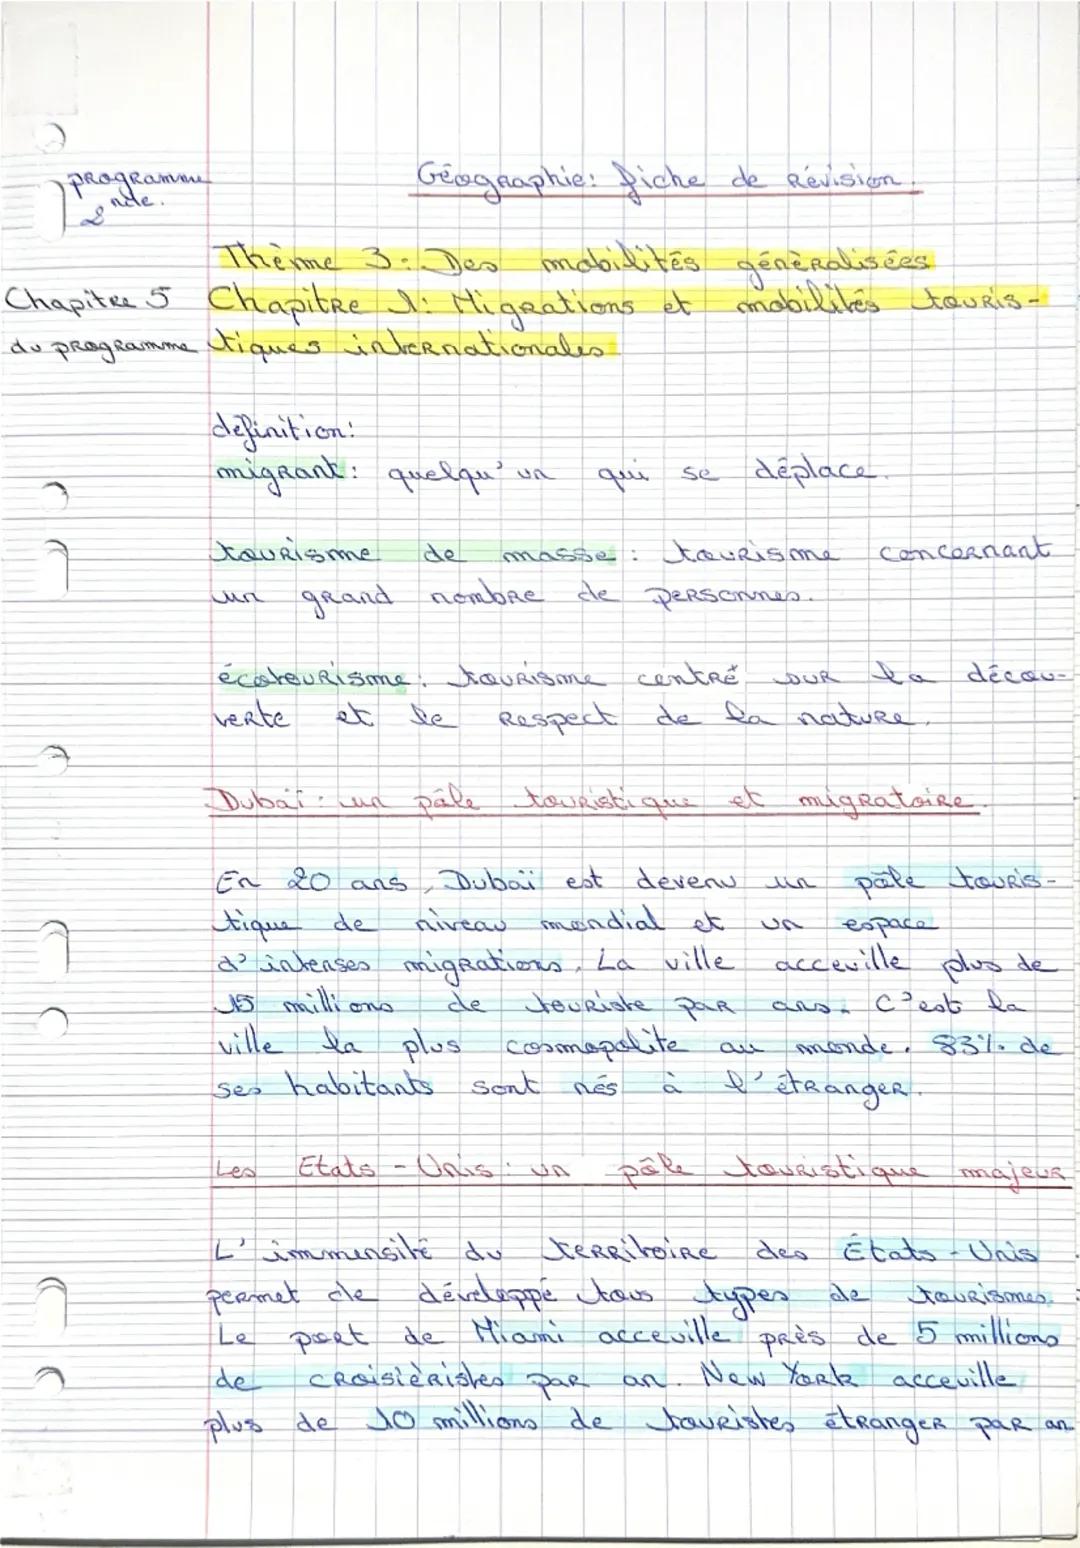 programme
2nde.
Géographie: fiche de révision.
Thème 3: Des mobilités généralisées
Chapitre 5
du programme
Chapitre 1: Migrations et mobilités touris-
tiques internationales
définition:
migrant: quelqu'un qui se déplace.
tourisme de masse: tourisme concernant
un grand nombre de personnes.
écotourisme: tourisme centré sur la décou-
verte et le respect de la nature.
Dubaï: un pôle touristique et migratoire.
En 20 ans, Dubaï est devenu un pôle touris-
tique de niveau mondial et un espace
d'intenses migrations. La ville acceuille plus de
15 millions de touriste par ans. C'est la
ville la plus cosmopolite au monde. 83% de
ses habitants sont nés à l'étranger.
Les Etats-Unis: un pôle touristique majeur
L'immensité du territoire des États-Unis
permet de développé tous types de tourismes.
Le port de Miami acceuille près de 5 millions
de croisièristes par an. New York acceuille
plus de 10 millions de touristes étranger par an